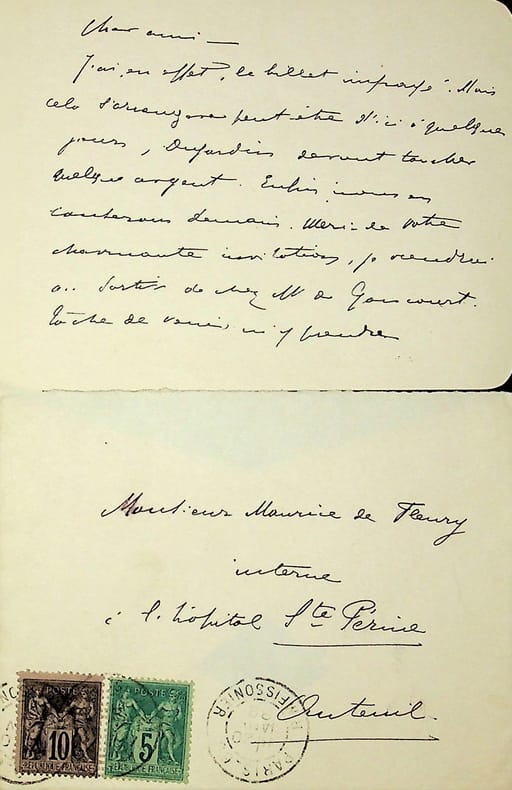 Cher ami —
J'ai, en effet, le billet impayé. Mais
cela s'arrangera peut être d'ici à quelques
jours, Dujardin devant toucher
quelque argent. Enfin, nous en
causerons demain. Merci de votre
charmante invitation, je viendrai
au sortir de chez Mr de Goncourt.
tâche de venir m'y prendre
Monsieur Maurice de Fleury
interne
à l'hôpital Ste Périne
Auteuil.
POSTE POSTE
10 5
RÉPUBLIQUE FRANÇAISE RÉPUBLIQUE FRANÇAISE
PARIS
MEISSONIER